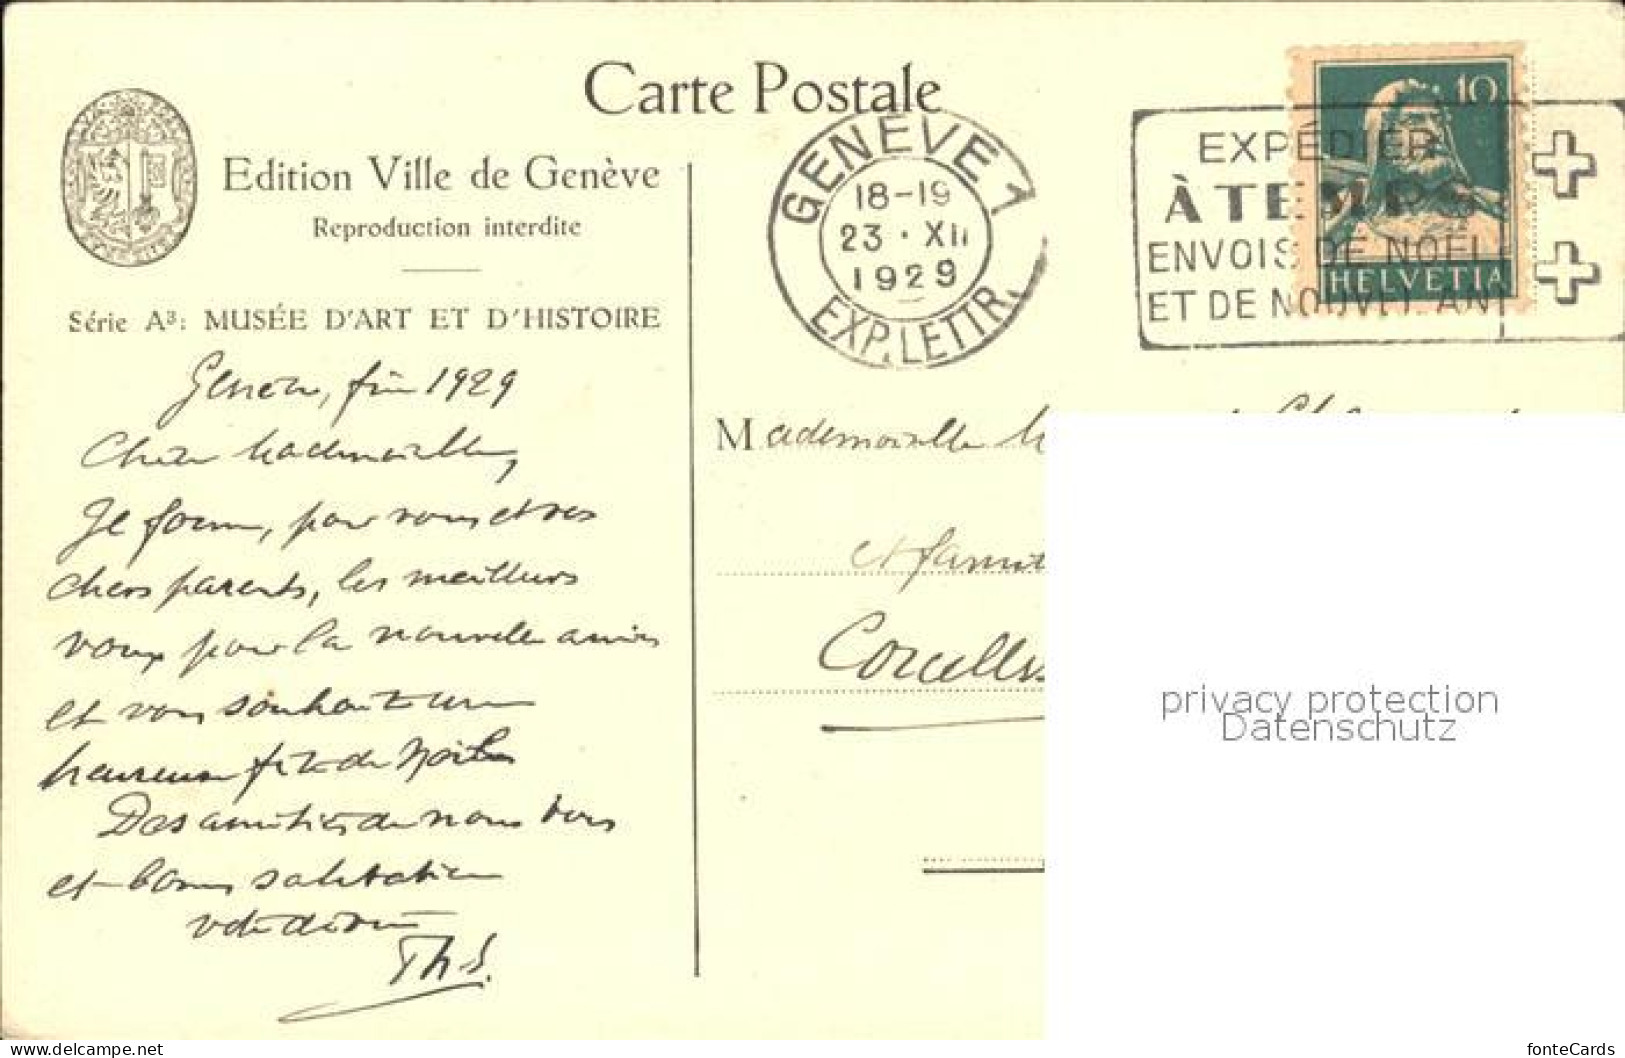 Carte Postale
Edition Ville de Genève
Reproduction interdite
Série A³: MUSÉE D'ART ET D'HISTOIRE
GENÈVE 1
18-19
23·XII
1929
EXP. LETTR.
EXPÉDIER
À TEMPS
ENVOIS DE NOËL
ET DE NOUVEL AN
10
HELVETIA
Genève, fin 1929
Chère Mademoiselle,
Je forme, pour vous et vos
chers parents, les meilleurs
voeux pour la nouvelle année
et vous souhaite une
heureuse fête de Noël
Des amitiés de nous tous
et bonne salutation
votre dévoué
Th. S.
Mademoiselle
et famille
Corcelles
privacy protection
Datenschutz
https://www.delcampe.net
fonteCards